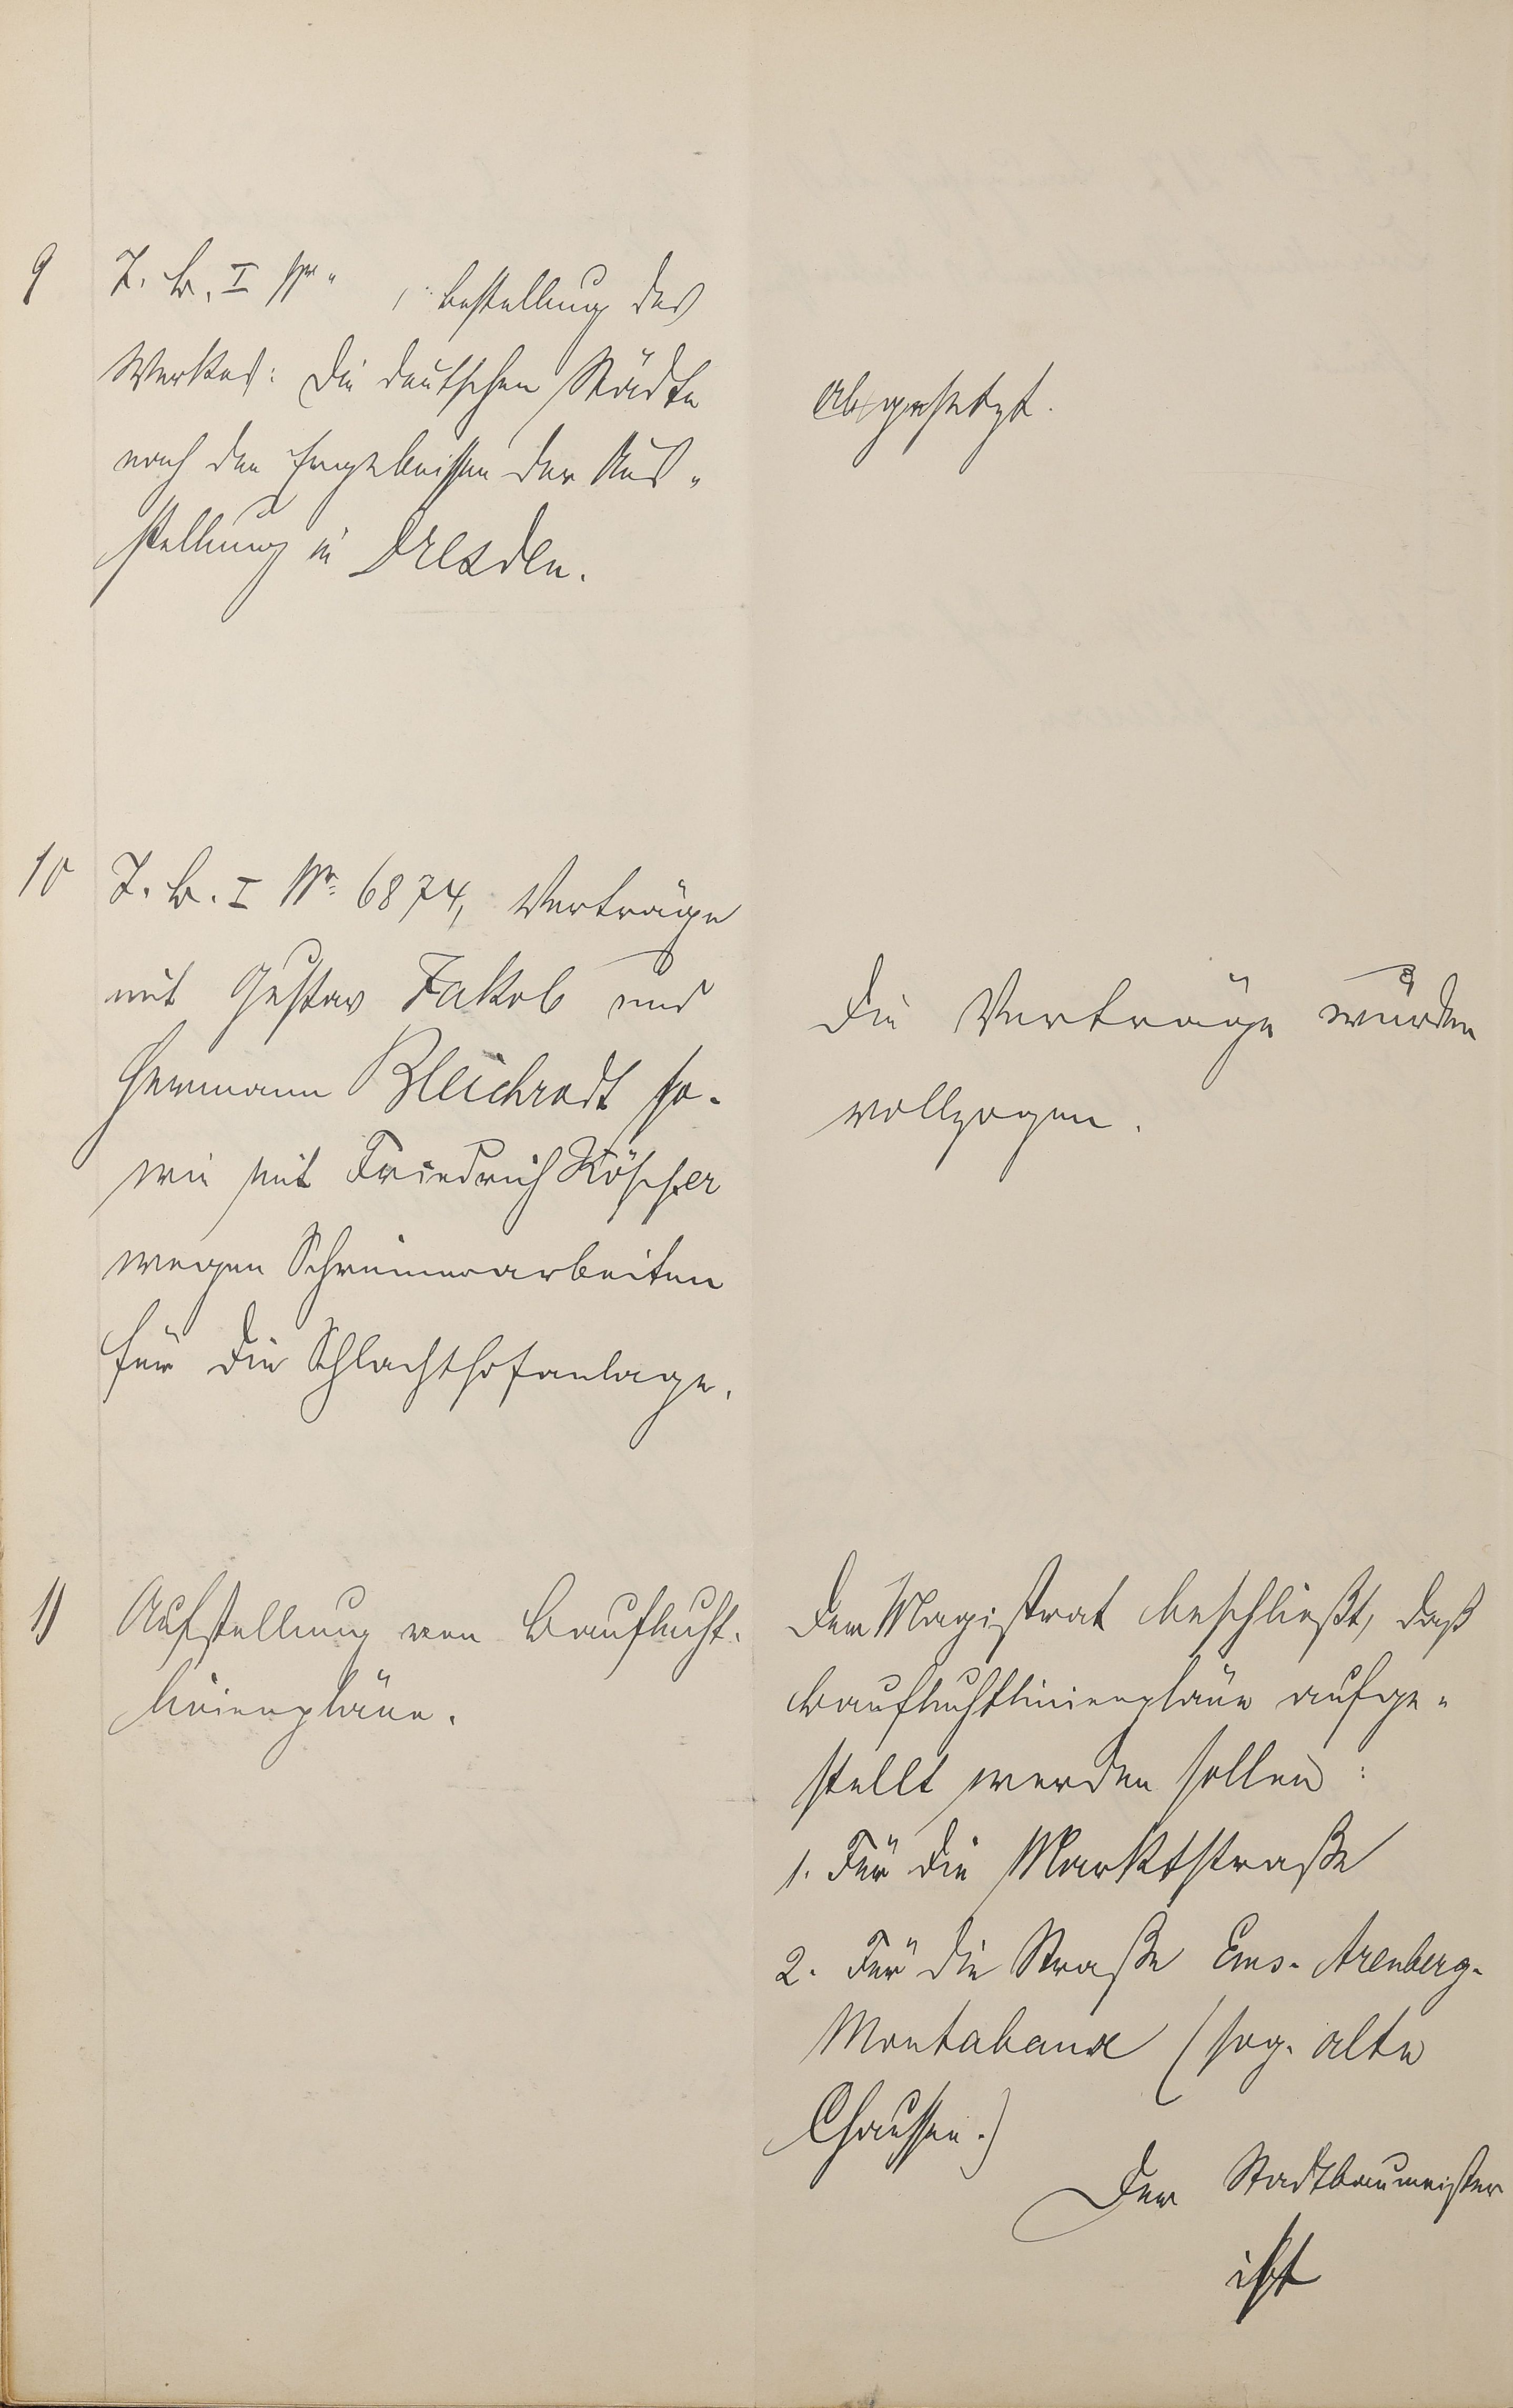 9 J. B. I Nr. , Bestellung des
Werkes: Die deutschen Städte
nach den Ergebnissen der Aus-
stellung in Dresden.
Abgesetzt.
10 J. B. I Nr. 6874, Verträge
mit Gustav Jakob und
Hermann Bleichrodt so-
wie mit Friedrich Röscher
wegen Schreinerarbeiten
für die Schlachthofanlage.
Die Verträge wurden
vollzogen.
11 Aufstellung von Bauflucht-
linienpläne.
Der Magistrat beschließt, daß
Baufluchtlinienpläne aufge-
stellt werden sollen:
1. Für die Marktstraße
2. Für die Straße Ems-Arenberg-
Montabaur (sog. alte
Chaussee.)
Der Stadtbaumeister
ist